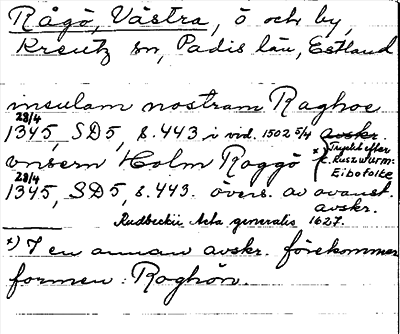 Rågö, Västra, ö och by,
Kreutz sn, Padis län, Estland
insulam nostram Raghoe
23/4
1345, SD5, s. 443 i vid. 1502 5/4 avskr.
x) Tryckt efter
C. Russwurm:
Eibofolke
vnsern Holm Roggö
23/4
1345, SD5, s. 443. övers. av ovanst.
avskr.
Rudbeckii Acta generalis 1627.
x) I en annan avskr. förekommer
formen: Roghön.